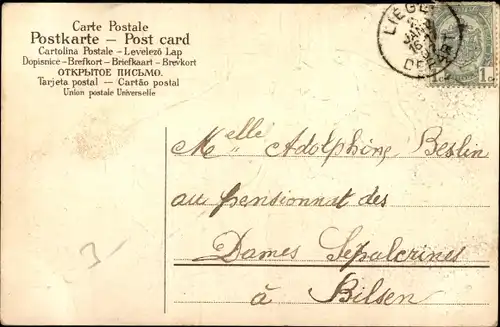 Carte Postale
Postkarte – Post card
Cartolina Postale – Levelező Lap
Dopisnice – Brefkort – Briefkaart – Brevkort
ОТКРЫТОЕ ПИСЬМО.
Tarjeta postal – Cartão postal
Union postale Universelle
LIÈGE
JANV
16
DEPART
1c 1c
Melle Adolphine Beslin
au pensionnat des
Dames Sépulcrines
à Bilsen
3-